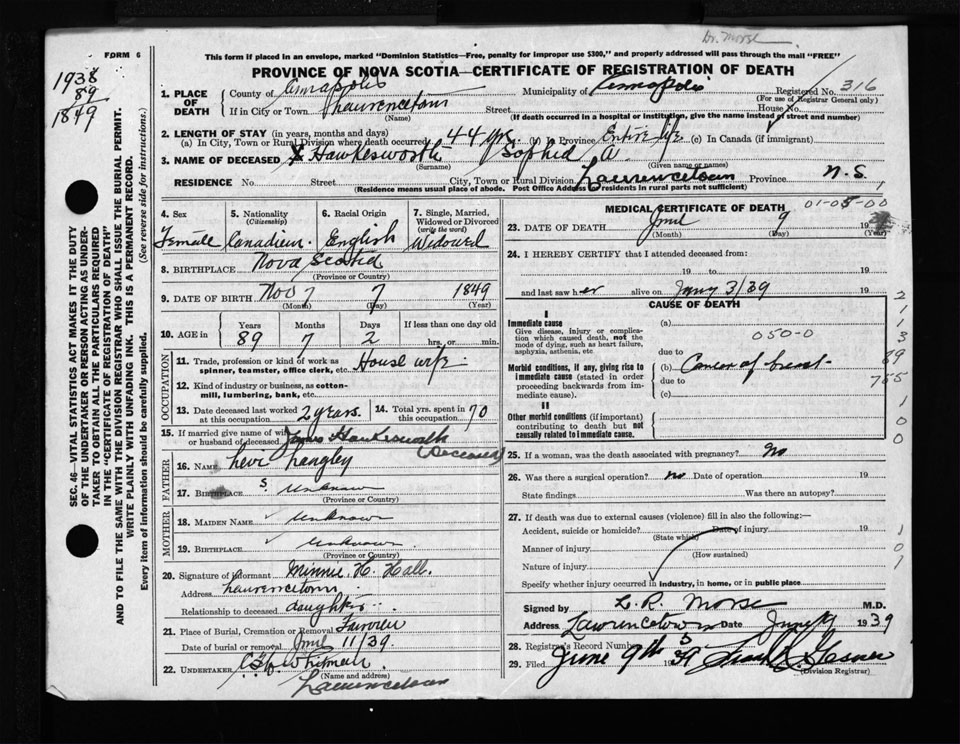 Dr. Morse
FORM 6
This form if placed in an envelope, marked "Dominion Statistics—Free, penalty for improper use $300," and properly addressed will pass through the mail "FREE"
PROVINCE OF NOVA SCOTIA—CERTIFICATE OF REGISTRATION OF DEATH
1938
89
1849
1. PLACE OF DEATH
County of Annapolis Municipality of Annapolis Registered No. 316
(For use of Registrar General only)
If in City or Town Laurencetown Street House No.
(Name) (If death occurred in a hospital or institution, give the name instead of street and number)
2. LENGTH OF STAY (in years, months and days)
(a) In City, Town or Rural Division where death occurred 44 yrs. (b) In Province Entire life (c) In Canada (if immigrant)
3. NAME OF DECEASED Hawkesworth Sophia A.
(Surname) (Given name or names)
RESIDENCE No. Street City, Town or Rural Division Laurencetown Province N.S.
(Residence means usual place of abode. Post Office Address of residents in rural parts not sufficient)
SEC. 46—VITAL STATISTICS ACT MAKES IT THE DUTY OF THE UNDERTAKER OR PERSON ACTING AS UNDERTAKER TO OBTAIN ALL THE PARTICULARS REQUIRED IN THE "CERTIFICATE OF REGISTRATION OF DEATH"
AND TO FILE THE SAME WITH THE DIVISION REGISTRAR WHO SHALL ISSUE THE BURIAL PERMIT.
WRITE PLAINLY WITH UNFADING INK. THIS IS A PERMANENT RECORD.
Every item of information should be carefully supplied. (See reverse side for instructions.)
4. Sex Female
5. Nationality (Citizenship) Canadian.
6. Racial Origin English
7. Single, Married, Widowed or Divorced (write the word) Widowed
8. BIRTHPLACE Nova Scotia
(Province or Country)
9. DATE OF BIRTH Nov 7 7 1849
(Month) (Day) (Year)
10. AGE in Years Months Days If less than one day old
89 7 2 hrs. or min.
OCCUPATION
11. Trade, profession or kind of work as spinner, teamster, office clerk, etc. House wife
12. Kind of industry or business, as cotton-mill, lumbering, bank, etc.
13. Date deceased last worked at this occupation 2 years. 14. Total yrs. spent in this occupation 70
15. If married give name of wife or husband of deceased James Hawkesworth
(Deceased)
FATHER
16. Name Levi Langley
17. Birthplace Unknown
(Province or Country)
MOTHER
18. MAIDEN NAME Unknown
19. BIRTHPLACE Unknown
(Province or Country)
20. Signature of informant Minnie H. Hall.
Address Laurencetown
Relationship to deceased daughter
21. Place of Burial, Cremation or Removal Fairview
Date of burial or removal 11/39.
22. UNDERTAKER Whitman
(Name and address)
Laurencetown
MEDICAL CERTIFICATE OF DEATH 01-05-00
23. DATE OF DEATH 9
(Month) (Day) (Year)
24. I HEREBY CERTIFY that I attended deceased from:
19 to 19
and last saw her alive on Jany 31/39 19
CAUSE OF DEATH
I
Immediate cause
Give disease, injury or complication which caused death, not the mode of dying, such as heart failure, asphyxia, asthenia, etc.
(a)
050-0
due to
Morbid conditions, if any, giving rise to immediate cause (stated in order proceeding backwards from immediate cause).
(b) Cancer of breast
due to
(c)
II
Other morbid conditions (if important) contributing to death but not causally related to immediate cause.
2
1
1
3
1
0
0
25. If a woman, was the death associated with pregnancy? no
26. Was there a surgical operation? no Date of operation 19
State findings Was there an autopsy?
27. If death was due to external causes (violence) fill in also the following:—
Accident, suicide or homicide? Date of injury 19
(State which)
Manner of injury
(How sustained)
Nature of injury
Specify whether injury occurred in industry, in home, or in public place
1
0
1
Signed by L. R. Morse M.D.
Address Lawrencetown Date June 1939
28. Registrar's Record Number 5
29. Filed June 9th 1939
(Division Registrar)